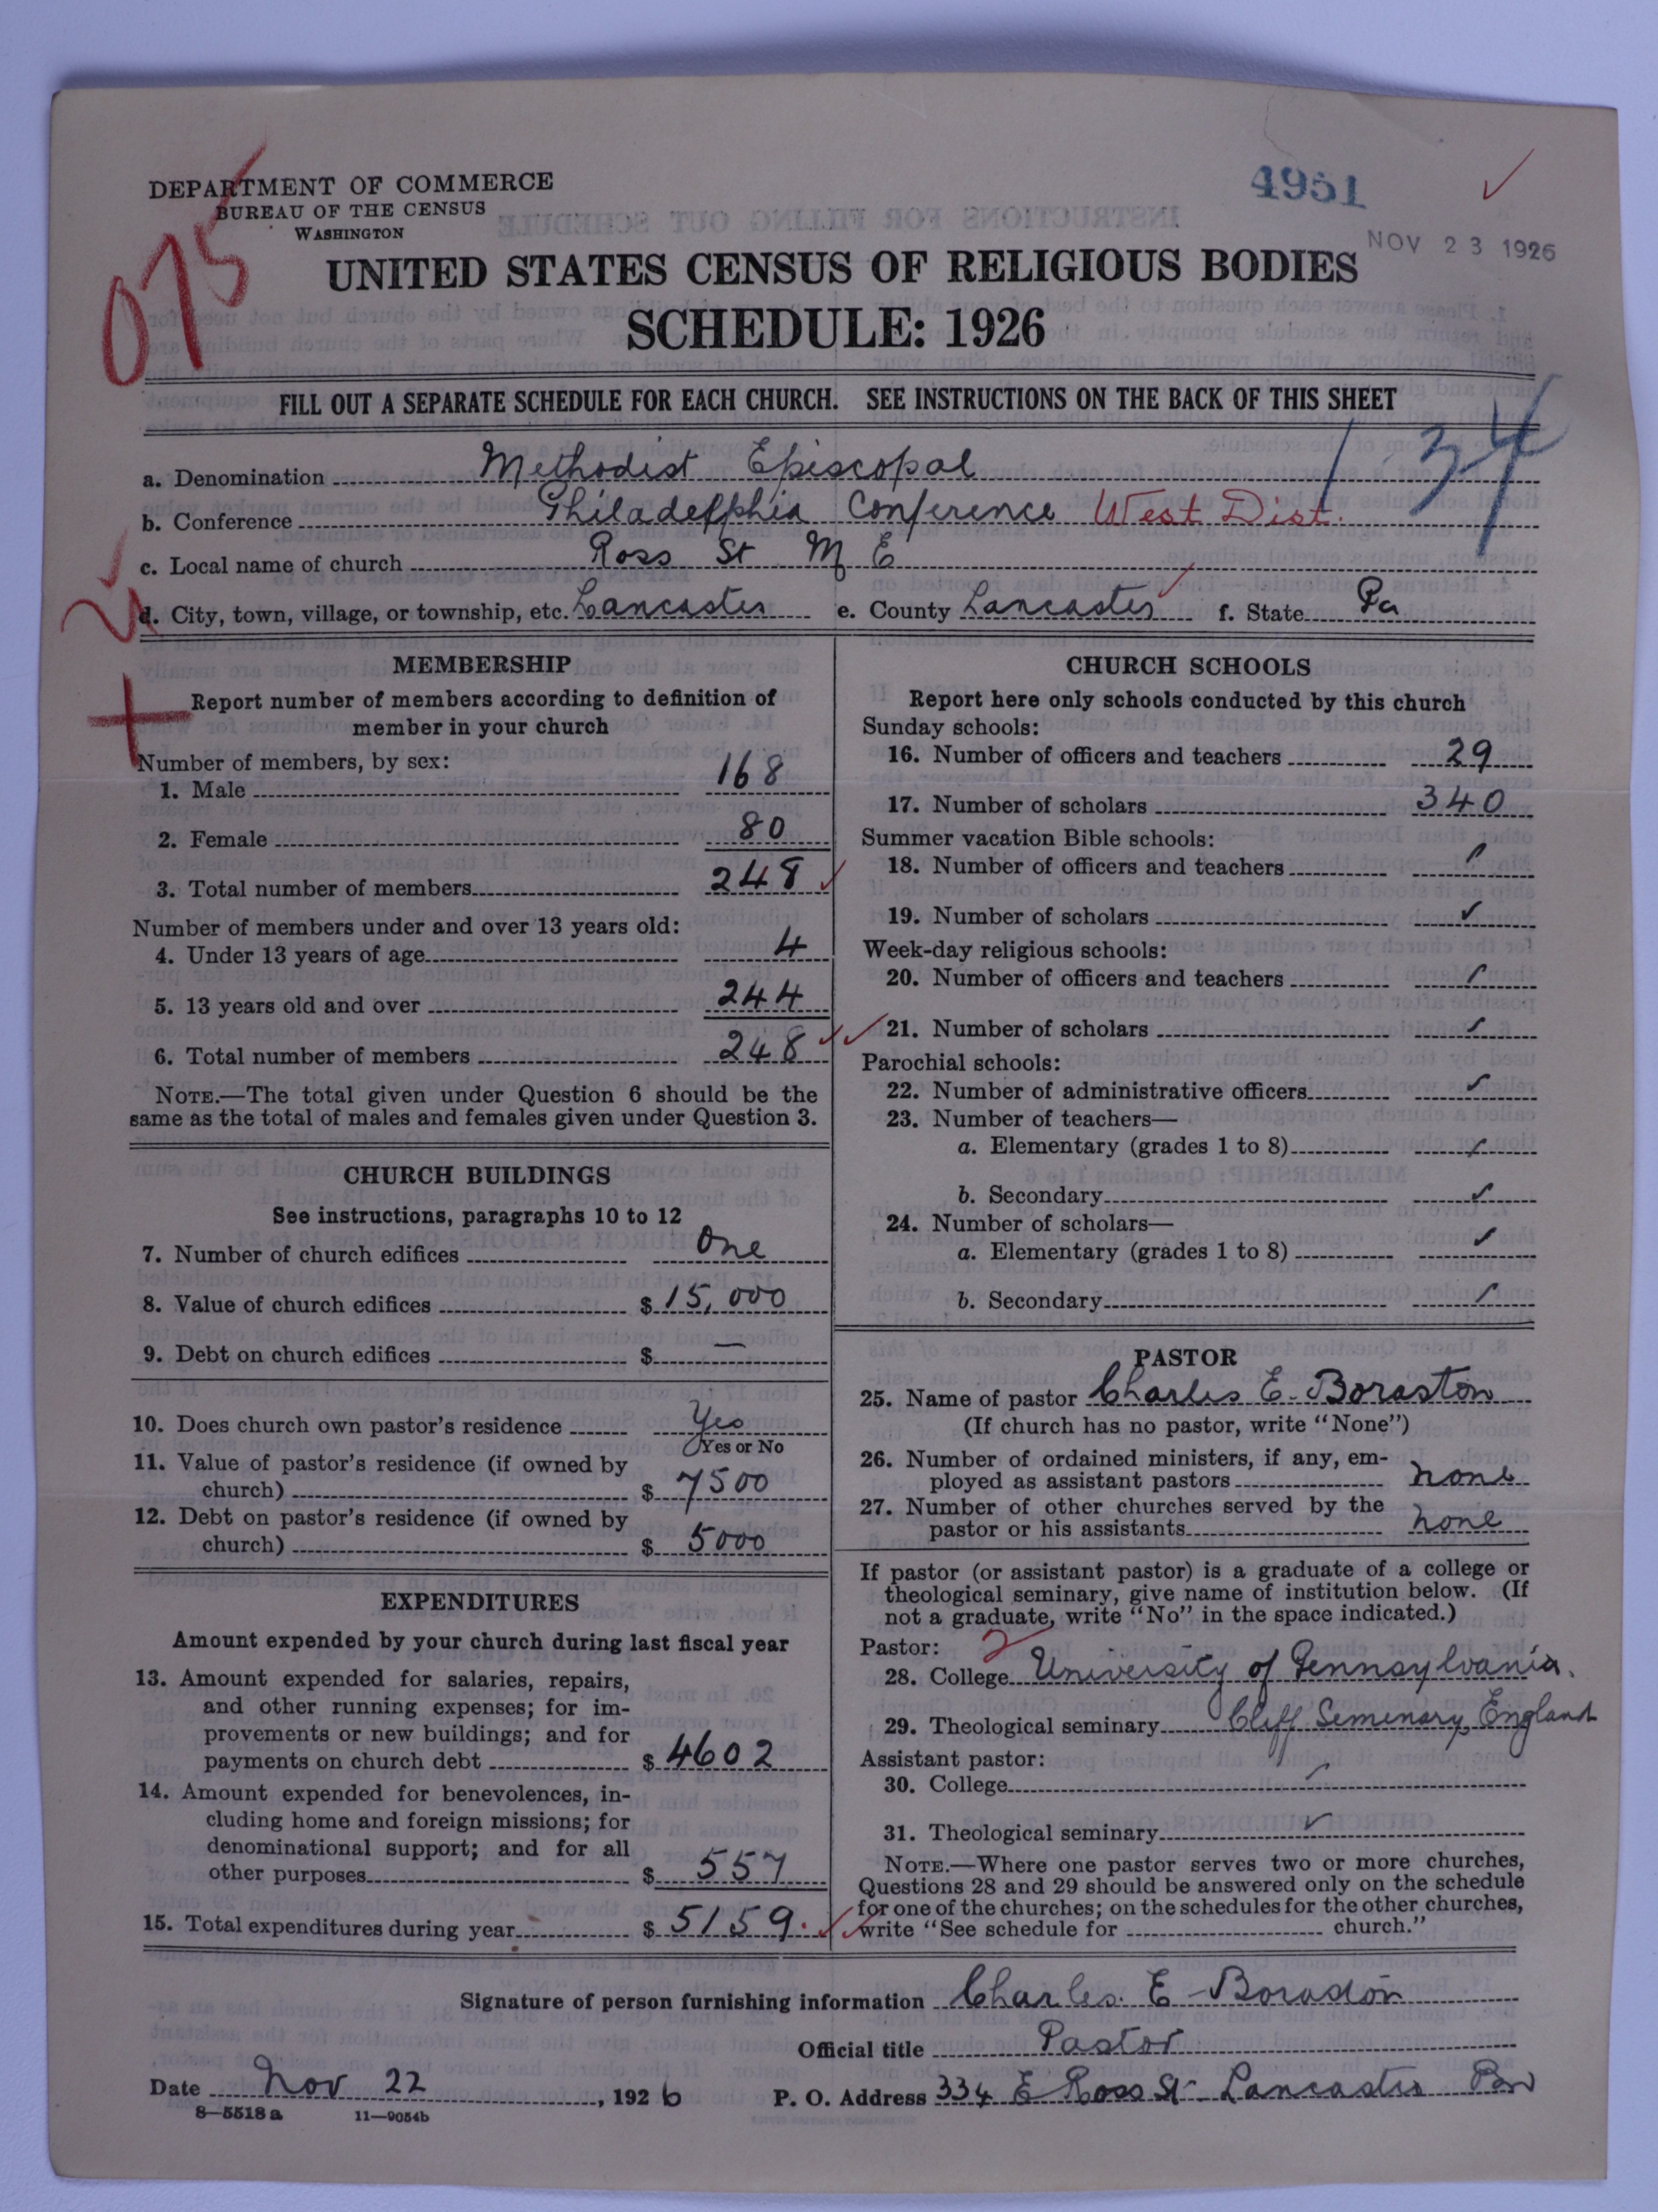 DEPARTMENT OF COMMERCE
BUREAU OF THE CENSUS
WASHINGTON
4951
NOV 23 1926
075
UNITED STATES CENSUS OF RELIGIOUS BODIES
SCHEDULE: 1926
FILL OUT A SEPARATE SCHEDULE FOR EACH CHURCH. SEE INSTRUCTIONS ON THE BACK OF THIS SHEET
134
a. Denomination Methodist Episcopal
b. Conference Philadelphia Conference West Dist.
c. Local name of church Ross St M E
d. City, town, village, or township, etc. Lancaster e. County Lancaster f. State Pa
MEMBERSHIP
Report number of members according to definition of
member in your church
Number of members, by sex:
1. Male 168
2. Female 80
3. Total number of members 248
Number of members under and over 13 years old:
4. Under 13 years of age 4
5. 13 years old and over 244
6. Total number of members 248
NOTE.—The total given under Question 6 should be the
same as the total of males and females given under Question 3.
CHURCH BUILDINGS
See instructions, paragraphs 10 to 12
7. Number of church edifices One
8. Value of church edifices $ 15,000
9. Debt on church edifices $ —
10. Does church own pastor's residence Yes
Yes or No
11. Value of pastor's residence (if owned by
church) $ 7500
12. Debt on pastor's residence (if owned by
church) $ 5000
EXPENDITURES
Amount expended by your church during last fiscal year
13. Amount expended for salaries, repairs,
and other running expenses; for im-
provements or new buildings; and for
payments on church debt $ 4602
14. Amount expended for benevolences, in-
cluding home and foreign missions; for
denominational support; and for all
other purposes $ 557
15. Total expenditures during year $ 5159.
CHURCH SCHOOLS
Report here only schools conducted by this church
Sunday schools:
16. Number of officers and teachers 29
17. Number of scholars 340
Summer vacation Bible schools:
18. Number of officers and teachers
19. Number of scholars
Week-day religious schools:
20. Number of officers and teachers
21. Number of scholars
Parochial schools:
22. Number of administrative officers
23. Number of teachers—
a. Elementary (grades 1 to 8)
b. Secondary
24. Number of scholars—
a. Elementary (grades 1 to 8)
b. Secondary
PASTOR
25. Name of pastor Charles E. Boraston
(If church has no pastor, write "None")
26. Number of ordained ministers, if any, em-
ployed as assistant pastors none
27. Number of other churches served by the
pastor or his assistants none
If pastor (or assistant pastor) is a graduate of a college or
theological seminary, give name of institution below. (If
not a graduate, write "No" in the space indicated.)
Pastor: 2
28. College University of Pennsylvania.
29. Theological seminary Cliff Semenary, England
Assistant pastor:
30. College
31. Theological seminary
NOTE.—Where one pastor serves two or more churches,
Questions 28 and 29 should be answered only on the schedule
for one of the churches; on the schedules for the other churches,
write "See schedule for church."
Signature of person furnishing information Charles E Boraston
Official title Pastor
Date Nov 22, 1926 P. O. Address 334 E Ross St Lancaster Pa
8—5518a 11—9054b